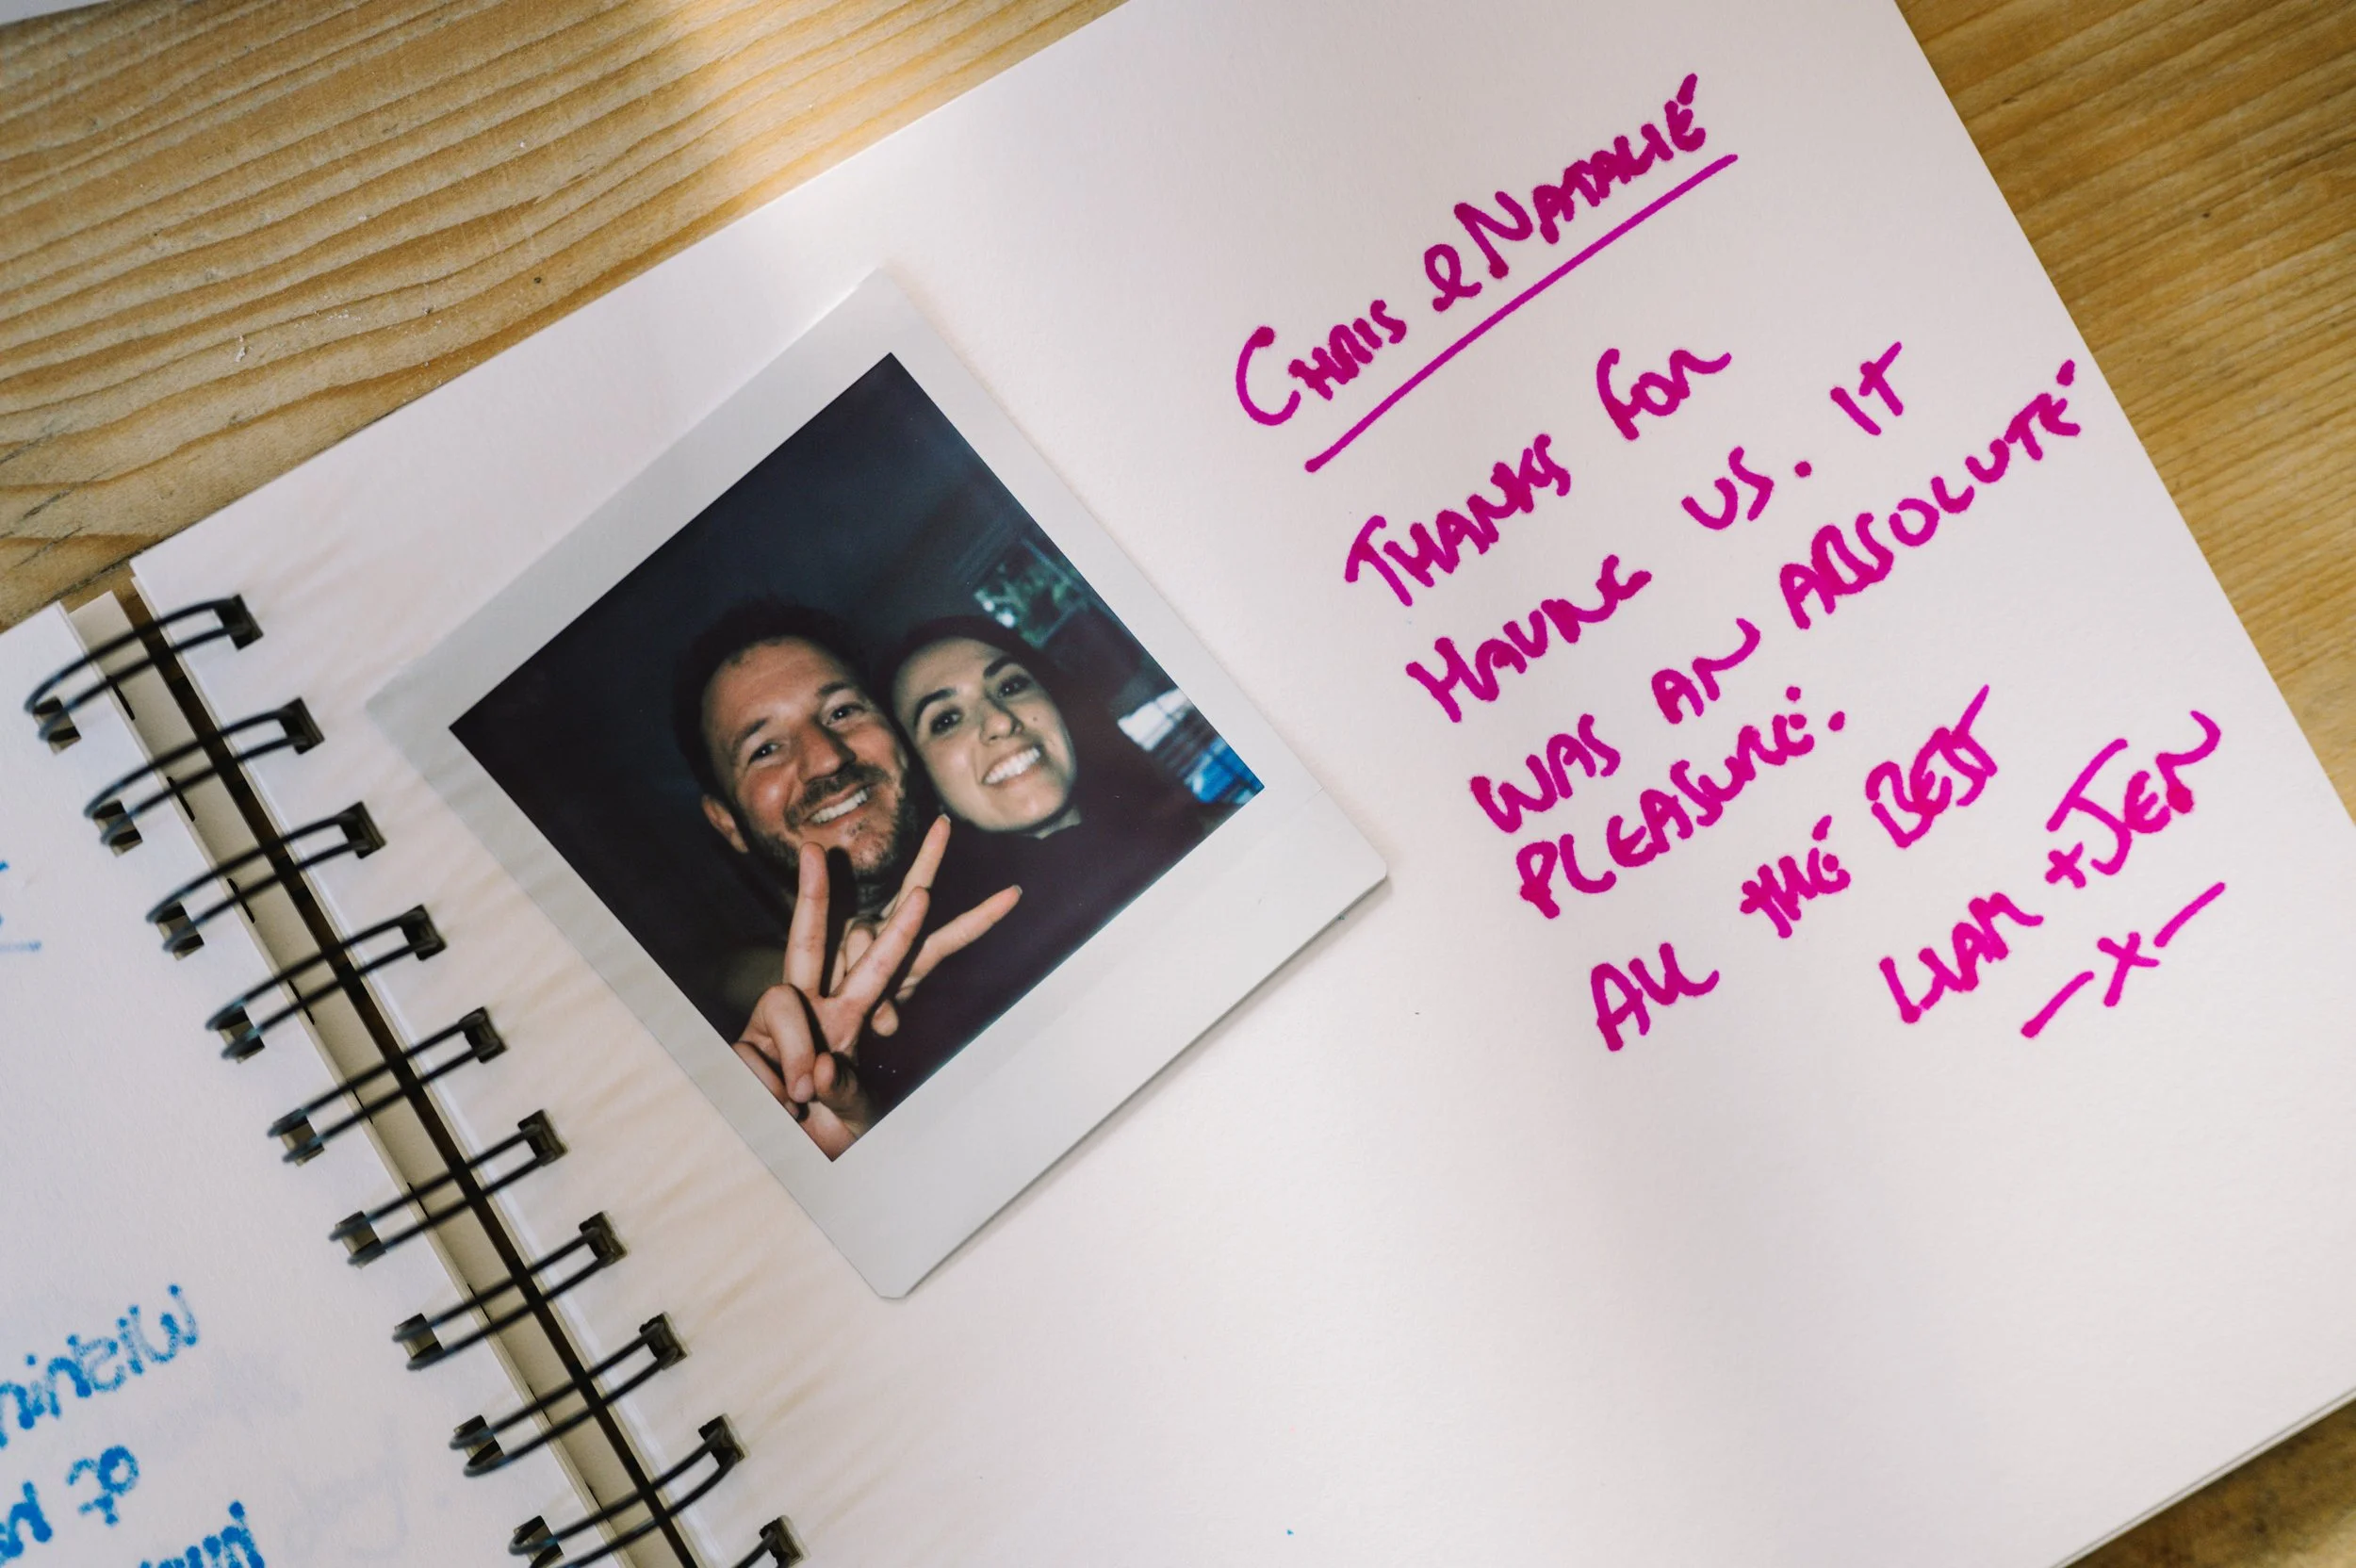 CHRIS & NATALIE
THANKS FOR
HAVING US. IT
WAS AN ABSOLUTE
PLEASURE.
ALL THE BEST
LIAM + JEN
—x—